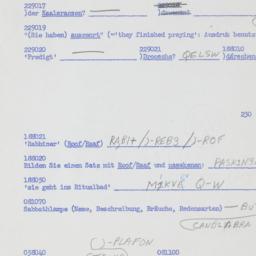 229017
)der Kaalsransen?
229019
'(Sie haben) ausgeort' (='they finished praying': Ausdruk benutz
229020 229021 188010
'Predigt' )Droosche? QELSW )därschen
230
188021
'Rabbiner' (Roof/Raaf) RABI+/)-REB3/)-ROF
188020
Bilden Sie einen Satz mit Roof/Raaf und paskenen: PASKINEN
188030
'sie geht ins Ritualbad' MIKVE Q-W
081070
Sabbathlampe (Name, Beschreibung, Bräuche, Redensarten) —
CANDLABRA
()-PLAFON
058040 081100